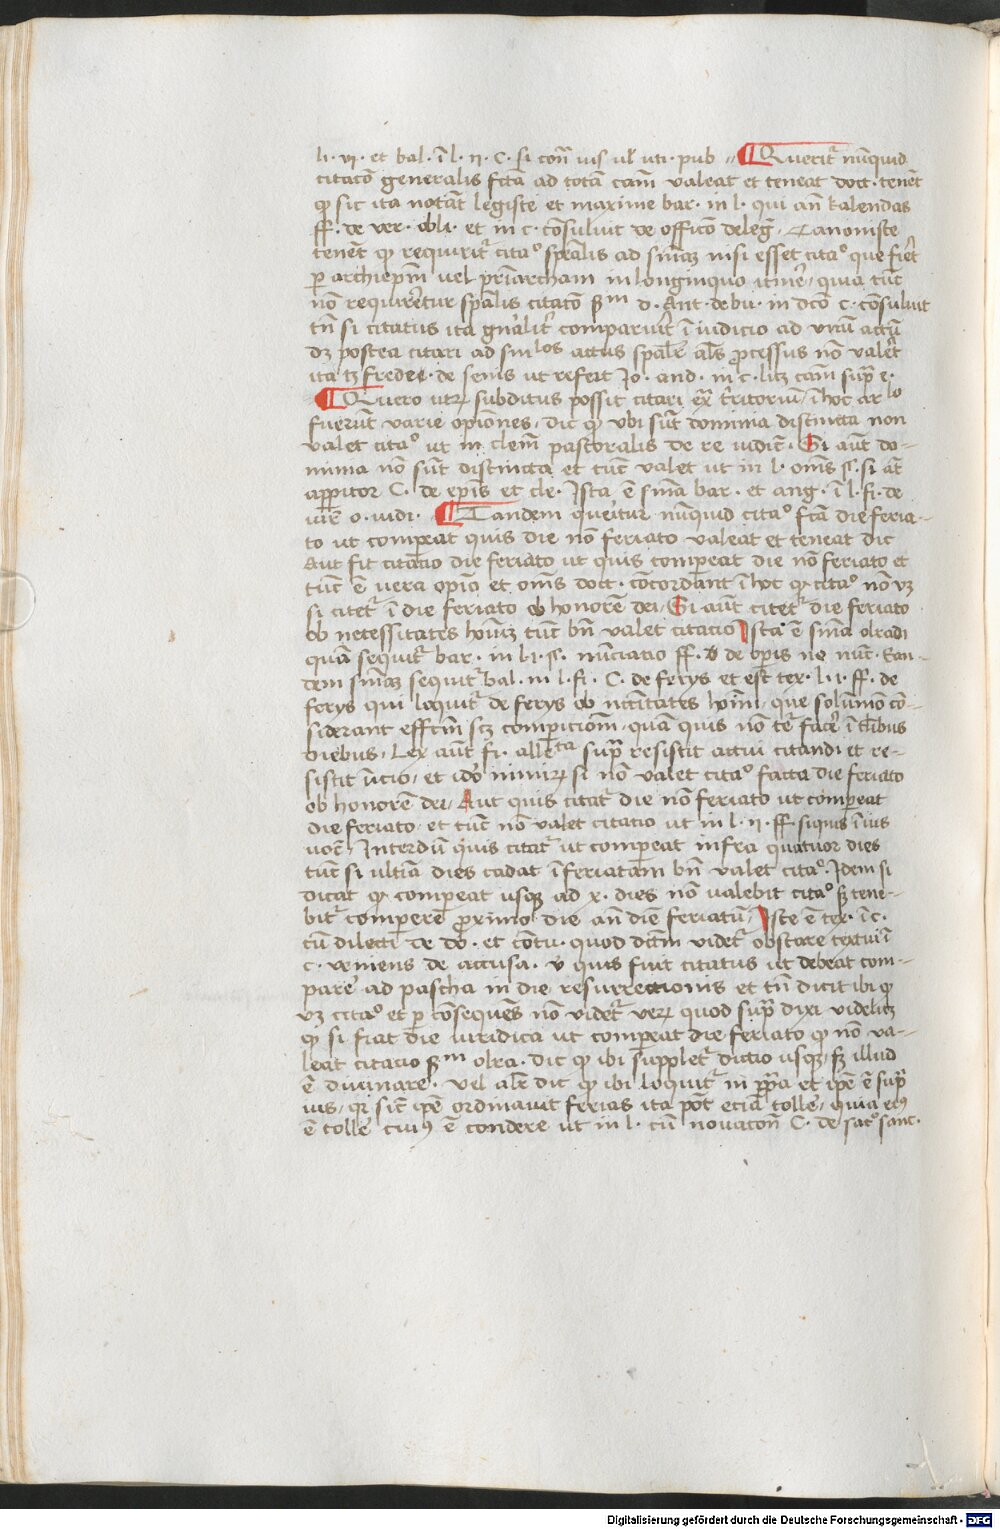 li · vi · et bal · ī l · ii · C · si cōtͣ ius ul̄ uti · pub // ¶ Querit᷑ nūnquid
citatō generalis fctā ad totā cām valeat et teneat doct · tenēt
ꝙ sic ita notāt legiste et maxime bar · in l · qui an̄ kalendas
ff · de ver · obli · et in c · cōsuluit de officō deleg̃ · Canoniste
tenēt ꝙ requirit᷑ citaᵒ spēalis ad sniāꝫ nisi esset citaᵒ que fier̄t
ꝑ archiep̄m uel pr̄iarcham in longinquo itiner̄ , quia tūc
nō requirer̄tur spālis citatō ẜᵐ d · Ant · de bu · in dcō c · cōsuluit
tn̄ si citatus ita gn̄alit᷑ comparuit ī iudicio ad vnū actū
dꝫ postea citari ad sinl̄os actus spāle als̄ ꝓcessus nō valet
ita tꝫ freder · de senis ut refert Jo · and · in c · litꝫ cām supᷓ e ·
¶ Quero utrꝫ subditus possit citari exᷓ t̄ritoriū , ī hoc arlᵒ
fuerūt varie opīones , dic ꝙ vbi sūt dominia distincta non
valet citaᵒ ut in clem̄ pastoralis de re iudic̄ · Si aūt do-
minia nō sūt distincta et tūc valet ut in l · om̄s § · si at̄
apꝑitor C · de ep̄is et cle · Ista ē sniā bar · et ang · ī l · fi · de
iur̄e o · iudi · ¶ Tandem queritur nūquid citaᵒ fctā die feria-
to ut compeat quis die nō feriato valeat et teneat dic
Aut fit citatio die feriato ut quis compeat die nō feriato et
tūc ē vera opīo et om̄s doct · cōcordant ī hoc ꝙ citaᵒ nō vꝫ
si citet᷑ ī die feriato ob honorē dei , Si aūt citet᷑ die feriato
ob necessitates hom̄iꝫ tūc bn̄ valet citatio Ista ē sniā olradi
quā sequit᷑ bar · in l · i · § · nūciatio ff · de oꝑis no nūc · Ean-
dem sniāꝫ sequit᷑ bal · in l · fi · C · de ferijs et est tex · l · i · ff · de
ferijs qui loquit᷑ de ferijs ob nc̄citates hom̄i , que solūmō cō-
siderant effcm̄ scꝫ compicionē , quā quis nō tet᷑ facē ī tlibus
diebus , Lex aūt fi · alleᵗᵃ supᷓ resistit actui citandi et re-
sistit ūcio , et iđo nimirꝫ si nō valet citaᵒ facta die feriato
ob honorē dei , Aut quis citat᷑ die nō feriato ut compeat
die feriato , et tūc nō valet citatio ut in l · ii · ff · siquis ī ius
uoc̄ , Interdū quis citat᷑ ut compeat infra quatuor dies
tūc si ultiā dies cadat ī feriatam bn̄ valet citaᵒ · Idem si
dicat ꝙ compeat usqꝫ ad x · dies nō ualebit citaᵒ ẜꝫ tene-
bit᷑ compere ꝓximo die an̄ diē feriatū , Iste ē tex · ī c ·
cū dilecti de do · et cōtu · quod dcm̄ videt᷑ obstare textui ī
c · veniens de accusa · v̄ quis fuit citatus ut debeat com-
pare ad pascha in die resurrectionis et tn̄ dicit ibi ꝙ
vꝫ citaᵒ et ꝑ cōsequēs nō videt᷑ verꝫ quod supᷓ dixi videlicꝫ
ꝙ si fiat die iuridica ut compeat die feriato ꝙ nō va-
leat citatio ẜᵐ olra · dic ꝙ ibi supplet᷑ dictio usqꝫ , ẜꝫ illud
ē diuinare · Vel alr̄ dic ꝙ ibi loquit᷑ in pp̄a et ip̄e ē supᷓ
ius , qr sic̄ ip̄e ordinauit ferias ita pōt eciā tolle , quia ei9
ē tolle cui9 ē condere ut in l · cū nouatōn̄ C · de sacᵒ sanc ·
Digitalisierung gefördert durch die Deutsche Forschungsgemeinschaft - DFG